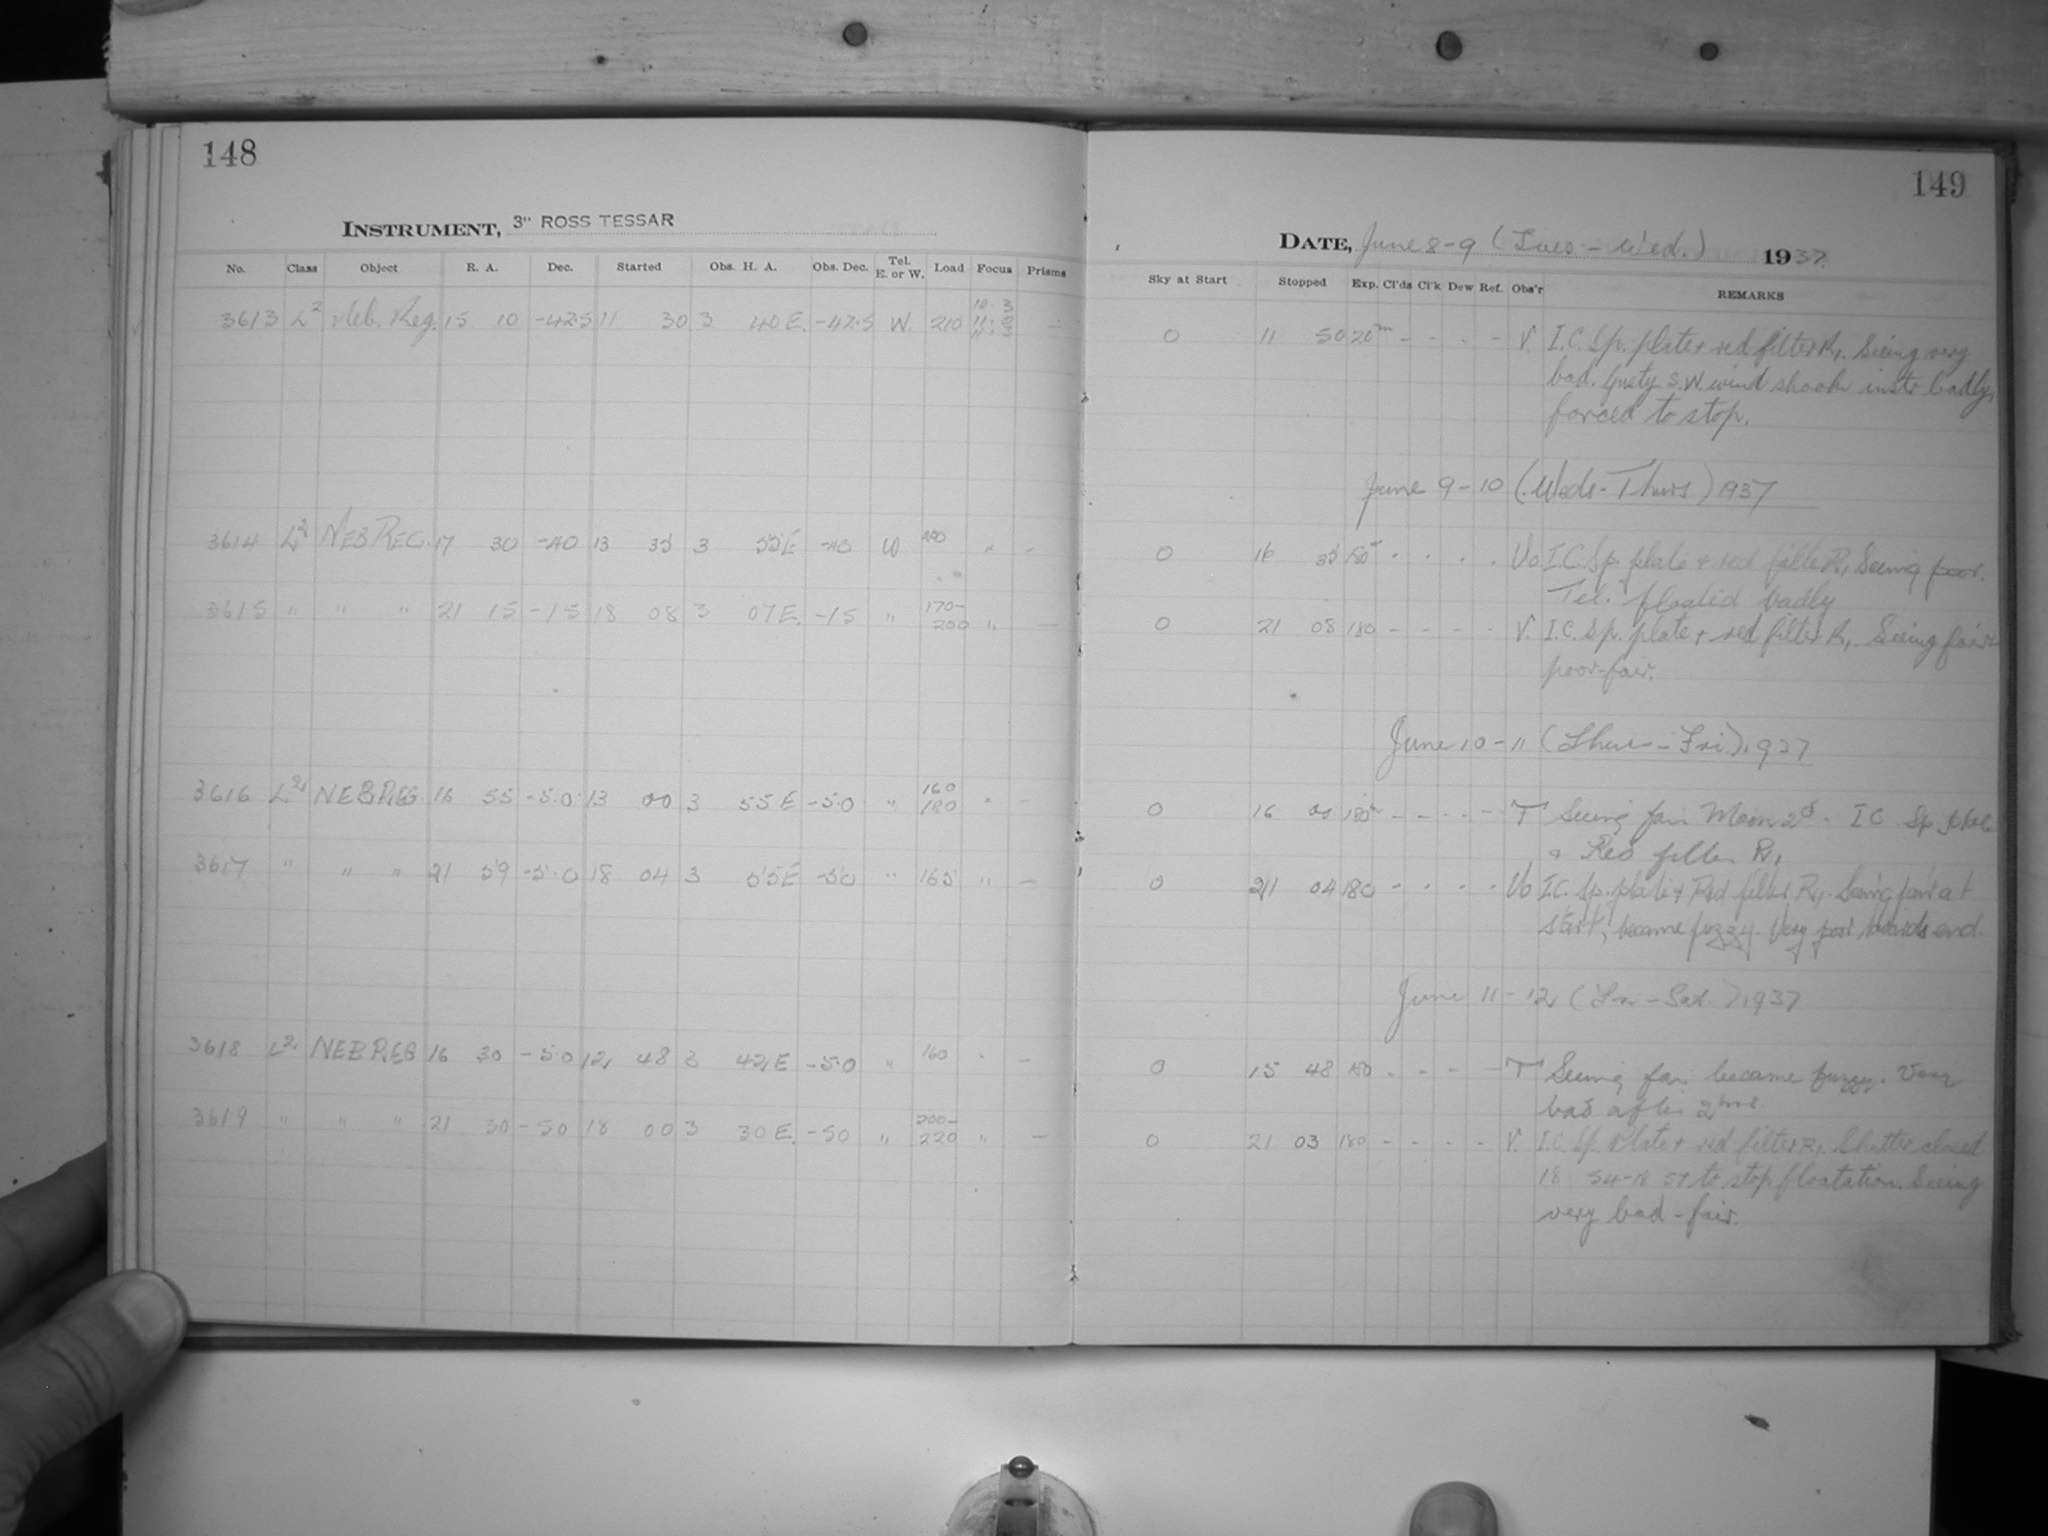 148
INSTRUMENT, 3" ROSS TESSAR
No. Class Object R. A. Dec. Started Obs. H. A. Obs. Dec. Tel. E. or W. Load Focus Prisms
3613 L2 Neb. Reg. 15 10 -42.5 11 30 3 40 E. -42.5 W. 210 —
3614 L2 NEB REG. 17 30 -40 13 35 3 55 E -40 W " -
3615 " " " 21 15 -15 18 08 3 07 E. -15 " 170-200 " —
3616 L2 NEB REG 16 55 -50 13 00 3 55 E -50 " 160 180 " -
3617 " " " 21 59 -50 18 04 3 55 E -50 " 165 " —
3618 L2 NEB REG 16 30 -50 12 48 3 42 E -50 " 160 " -
3619 " " " 21 30 -50 18 00 3 30 E. -50 " 200-220 " —
149
DATE, June 8-9 (Tues - Wed.) 1937.
Sky at Start Stopped Exp. Cl'ds Cl'k Dew Ref. Obs'r REMARKS
0 11 50 20m - - - - V. I.C. Sp. plate + red filter R1. Seeing very
bad. Gusty S.W. wind shook instr badly,
forced to stop.
June 9-10 (Weds-Thurs) 1937
0 16 35 180m - - - - Vo I.C. Sp. plate + red filter R1 Seeing poor.
Tel. floated badly
0 21 08 180 - - - - V. I.C. Sp. plate + red filter R1. Seeing fair-
poor-fair.
June 10-11 (Thurs-Fri.) 1937
0 16 00 180m - - - - T Seeing fair Moon 2d. I C Sp plate
+ Red filter R1
0 21 04 180 - - - - Vo I.C. Sp. plate + Red filter R1. Seeing fair at
start, became fuzzy. Very poor towards end.
June 11-12 (Fri-Sat.) 1937
0 15 48 180 - - - - T Seeing fair became fuzzy. Very
bad after 2hrs.
0 21 03 180 - - - - V. I.C. Sp. plate + red filter R1. Shutter closed
18 54-18 57 to stop floatation. Seeing
very bad-fair.